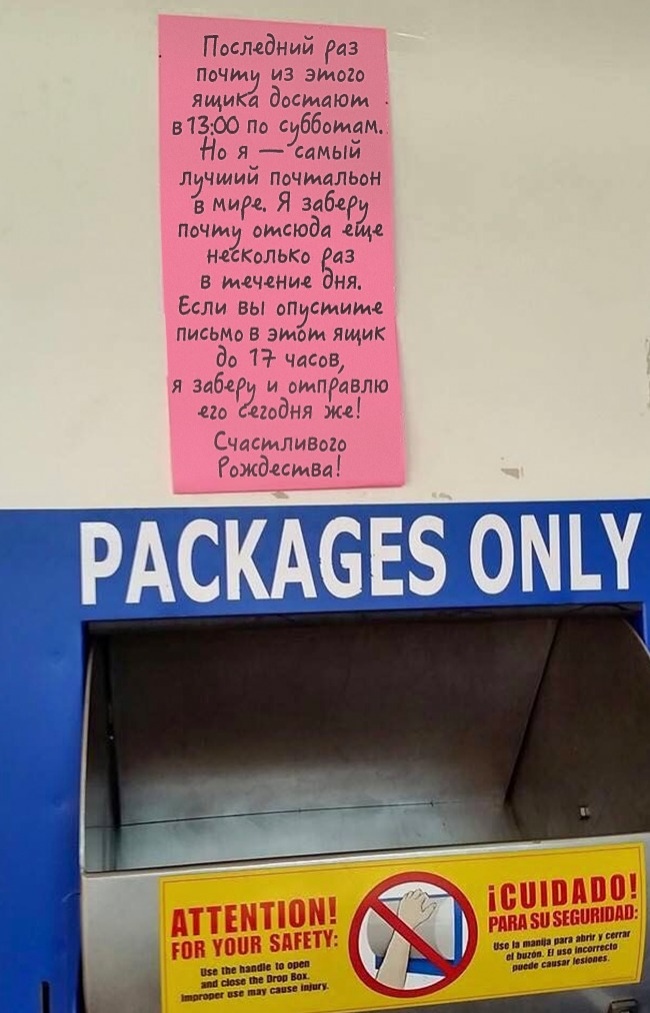 Последний раз
почту из этого
ящика достают
в 13:00 по субботам.
Но я — самый
лучший почтальон
в мире. Я заберу
почту отсюда еще
несколько раз
в течение дня.
Если вы опустите
письмо в этот ящик
до 17 часов,
я заберу и отправлю
его сегодня же!
Счастливого
Рождества!
PACKAGES ONLY
ATTENTION!
FOR YOUR SAFETY:
Use the handle to open
and close the Drop Box.
Improper use may cause injury.
¡CUIDADO!
PARA SU SEGURIDAD:
Use la manija para abrir y cerrar
el buzón. El uso incorrecto
puede causar lesiones.